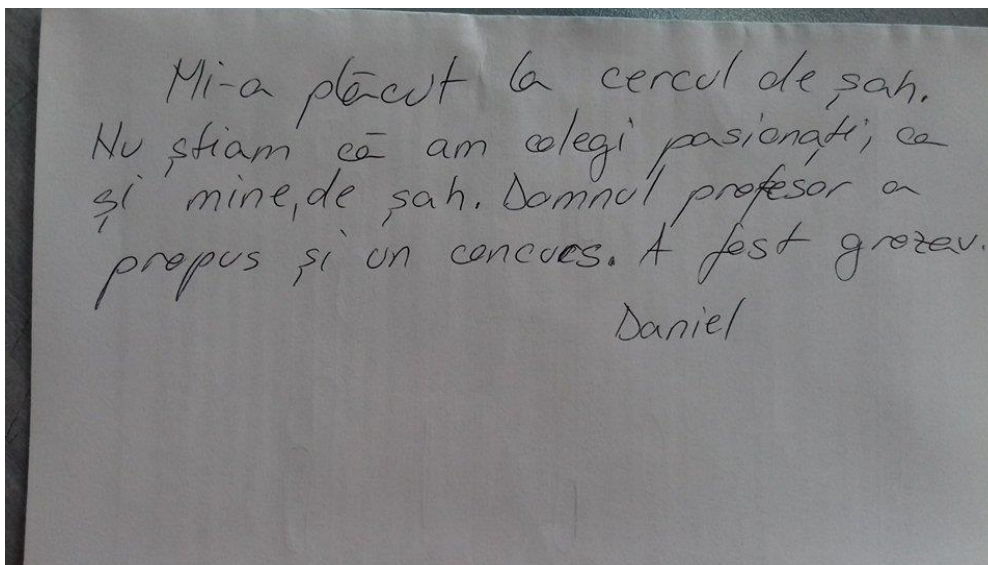 Mi-a plăcut la cercul de șah.
Nu știam că am colegi pasionați, ca
și mine, de șah. Domnul profesor a
propus și un concurs. A fost grozav.
Daniel